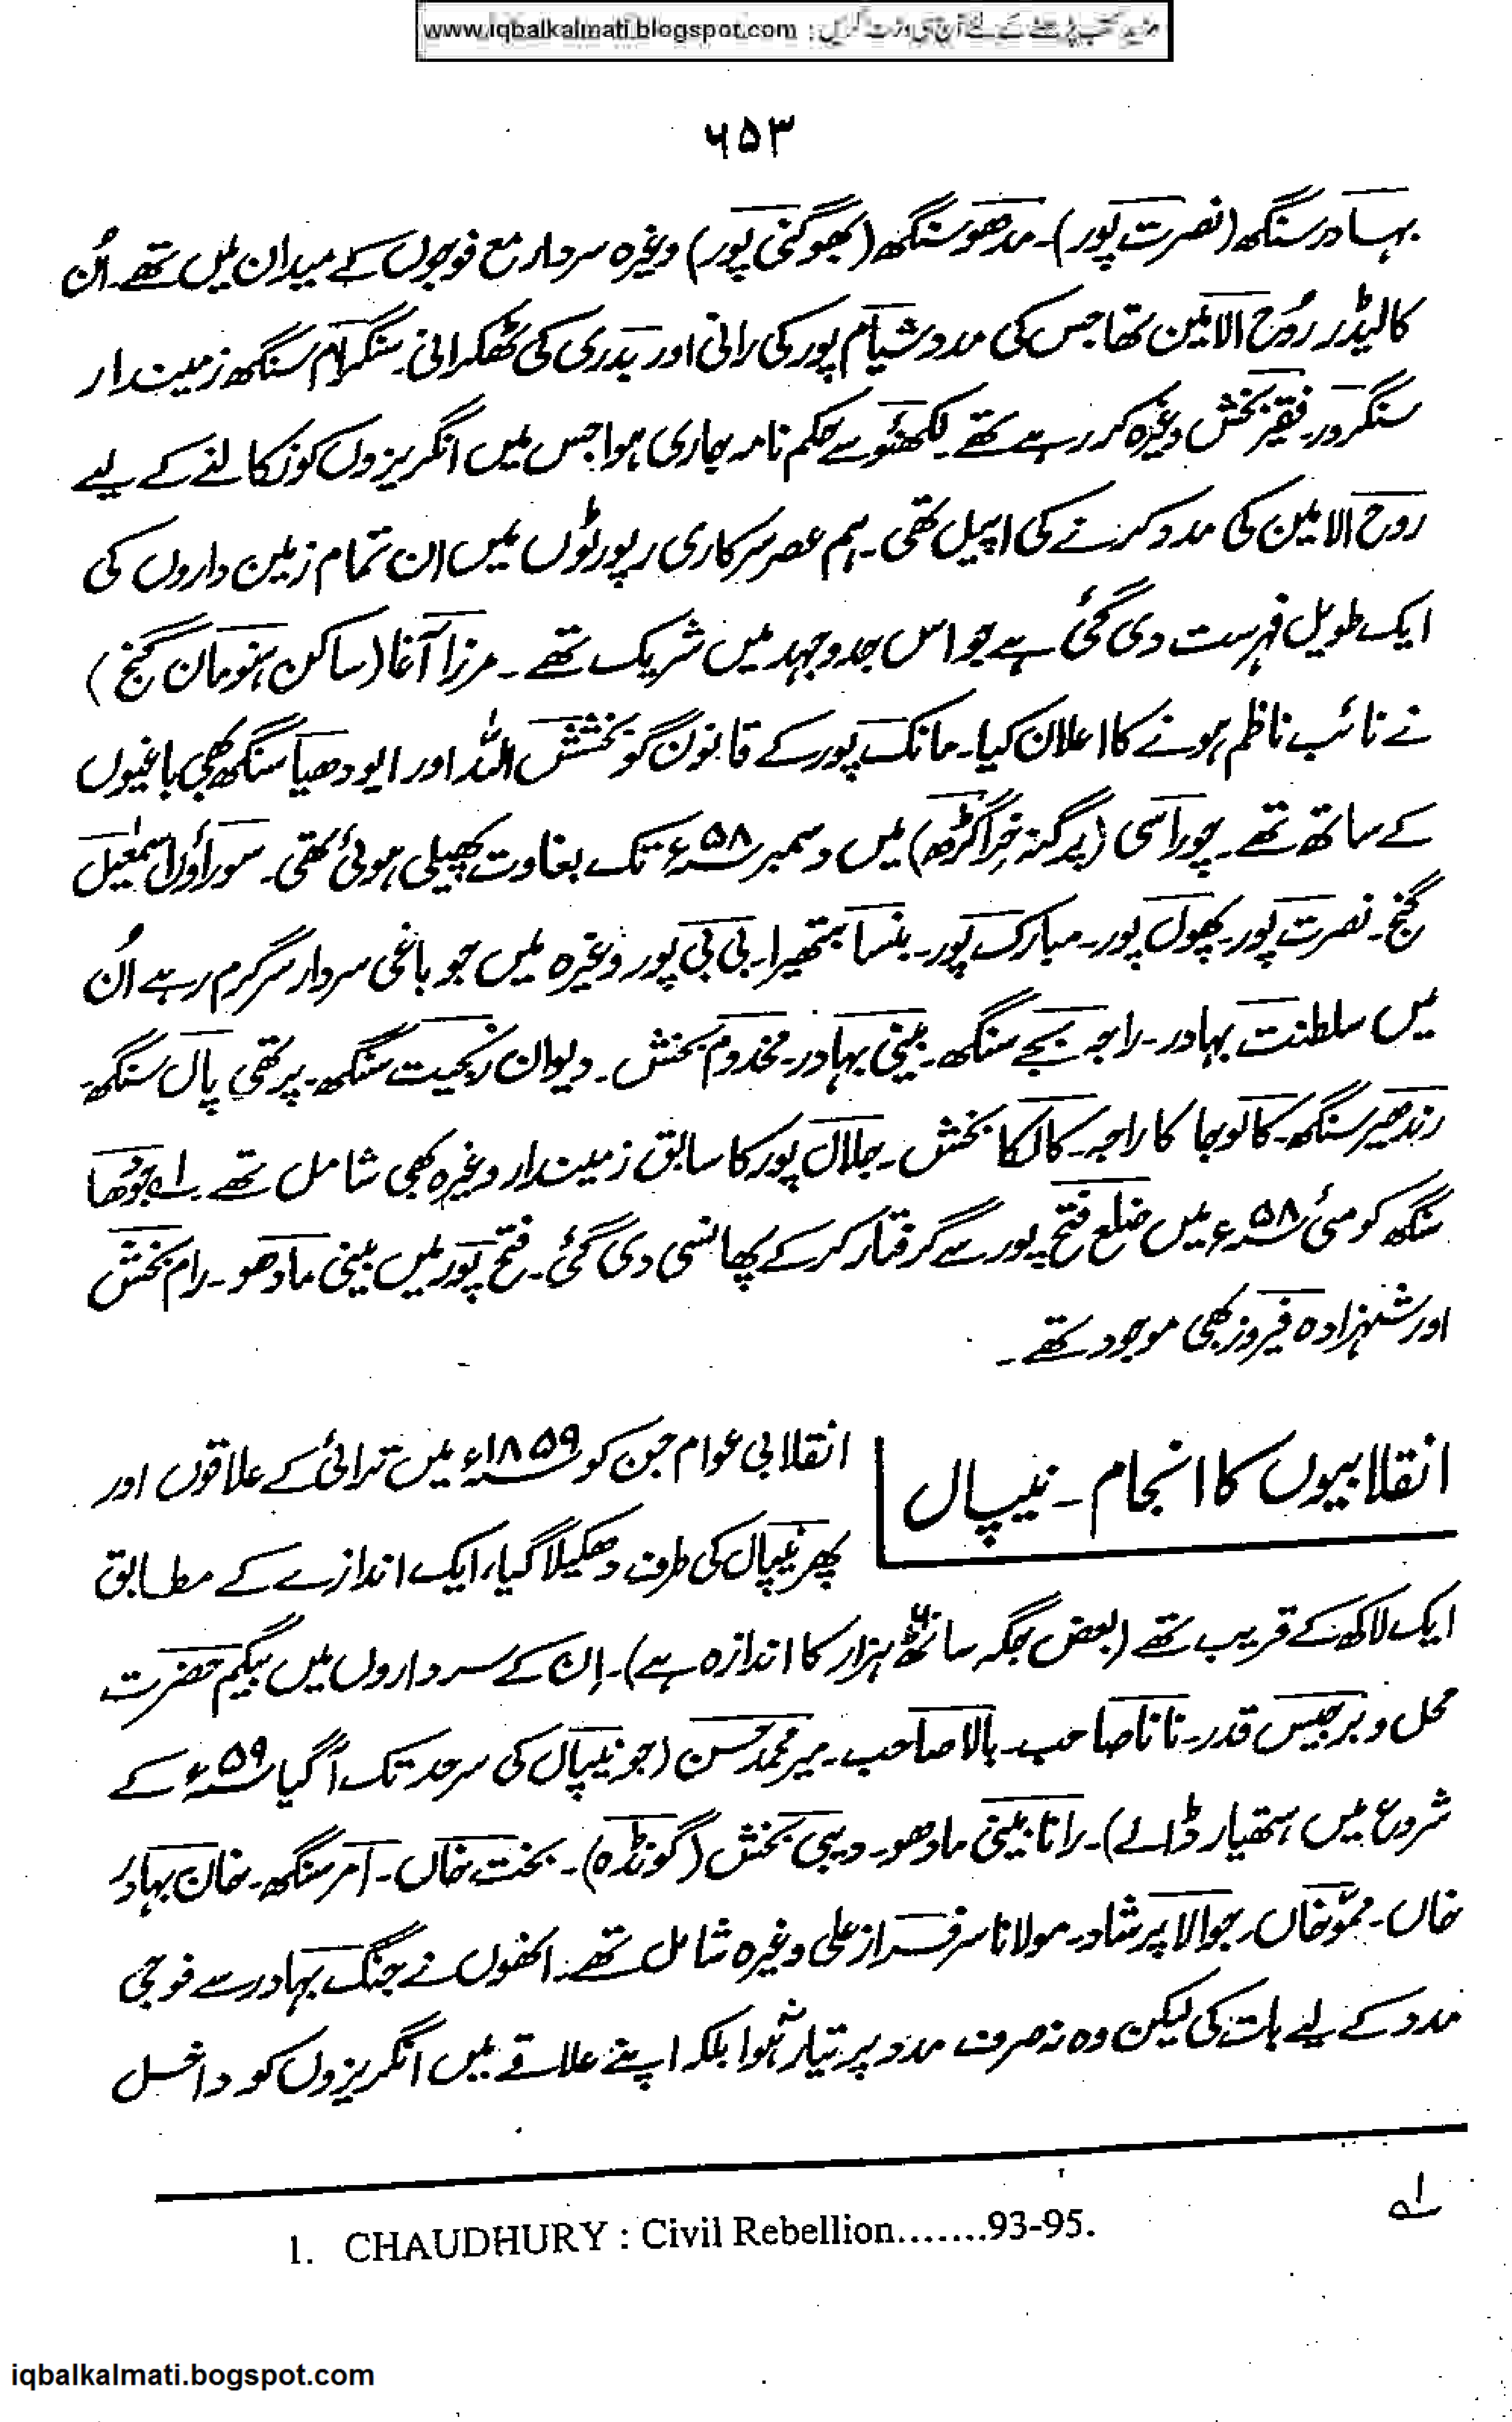 مزید کتب پڑھنے کے لئے آج ہی وزٹ کریں : www.iqbalkalmati.blogspot.com
۶۵۳
بہادر سنگھ (نصرت پور)۔ مدھو سنگھ (بھوگنی پور) وغیرہ سردار مع فوجوں کے میدان میں تھے۔ اُن
کا لیڈر رُوح الامین تھا جس کی مدد شیام پور کی رانی اور بدری کی ٹھکرائی۔ سنگرام سنگھ زمیندار
سنگرور۔ فقیر بخش وغیرہ کر رہے تھے۔ لکھنؤ سے حکم نامہ جاری ہوا جس میں انگریزوں کو نکالنے کے لیے
روح الامین کی مدد کرنے کی اپیل تھی۔ ہم عصر سرکاری رپورٹوں میں ان تمام زمین داروں کی
ایک طویل فہرست دی گئی ہے جو اس جدوجہد میں شریک تھے۔ مرزا آغا (ساکن ہنومان گنج)
نے نائب ناظم ہونے کا اعلان کیا۔ مانک پور کے قانون گو بخشش اللہ اور ایودھیا سنگھ بھی باغیوں
کے ساتھ تھے۔ چوراسی (پرگنہ خراگڑھ) میں دسمبر ۵۸ء تک بغاوت پھیلی ہوئی تھی۔ سوراؤں اسمٰعیل
گنج۔ نصرت پور۔ پھول پور۔ مبارک پور۔ بنسا ہتھیرا۔ بی بی پور وغیرہ میں جو باغی سردار سرگرم رہے اُن
میں سلطنت بہادر۔ راجہ بجے سنگھ۔ بینی بہادر۔ مخدوم بخش۔ دیوان رنجیت سنگھ۔ پرتھی پال سنگھ۔
رندھیر سنگھ۔ کالوجا کا راجہ۔ کالکا بخش۔ جلال پور کا سابق زمیندار وغیرہ بھی شامل تھے۔ ۱؎ جودھا
سنگھ کو مئی ۵۸ء میں ضلع فتح پور سے گرفتار کر کے پھانسی دی گئی۔ فتح پور میں بینی مادھو۔ رام بخش
اور شہزادہ فیروز بھی موجود تھے۔
انقلابیوں کا انجام۔ نیپال
انقلابی عوام جن کو ۱۸۵۹ء میں ترائی کے علاقوں اور
پھر نیپال کی طرف دھکیلا گیا، ایک اندازے کے مطابق
ایک لاکھ کے قریب تھے (بعض جگہ ساٹھ ہزار کا اندازہ ہے)۔ اِن کے سرداروں میں بیگم حضرت
محل و برجیس قدر۔ نانا صاحب۔ بالا صاحب۔ میر محمد حسن (جو نیپال کی سرحد تک آ گیا ۵۹ء کے
شروع میں ہتھیار ڈالے)۔ رانا بینی مادھو۔ دیبی بخش (گونڈہ)۔ بخت خاں۔ امر سنگھ۔ خان بہادر
خاں۔ ممّو خاں۔ جوالا پرشاد۔ مولانا سرفراز علی وغیرہ شامل تھے۔ انھوں نے جنگ بہادر سے فوجی
مدد کے لیے بات کی لیکن وہ نہ صرف مدد پر تیار نہ ہوا بلکہ اپنے علاقے میں انگریزوں کو داخل
۱؎
1. CHAUDHURY : Civil Rebellion.......93-95.
iqbalkalmati.bogspot.com